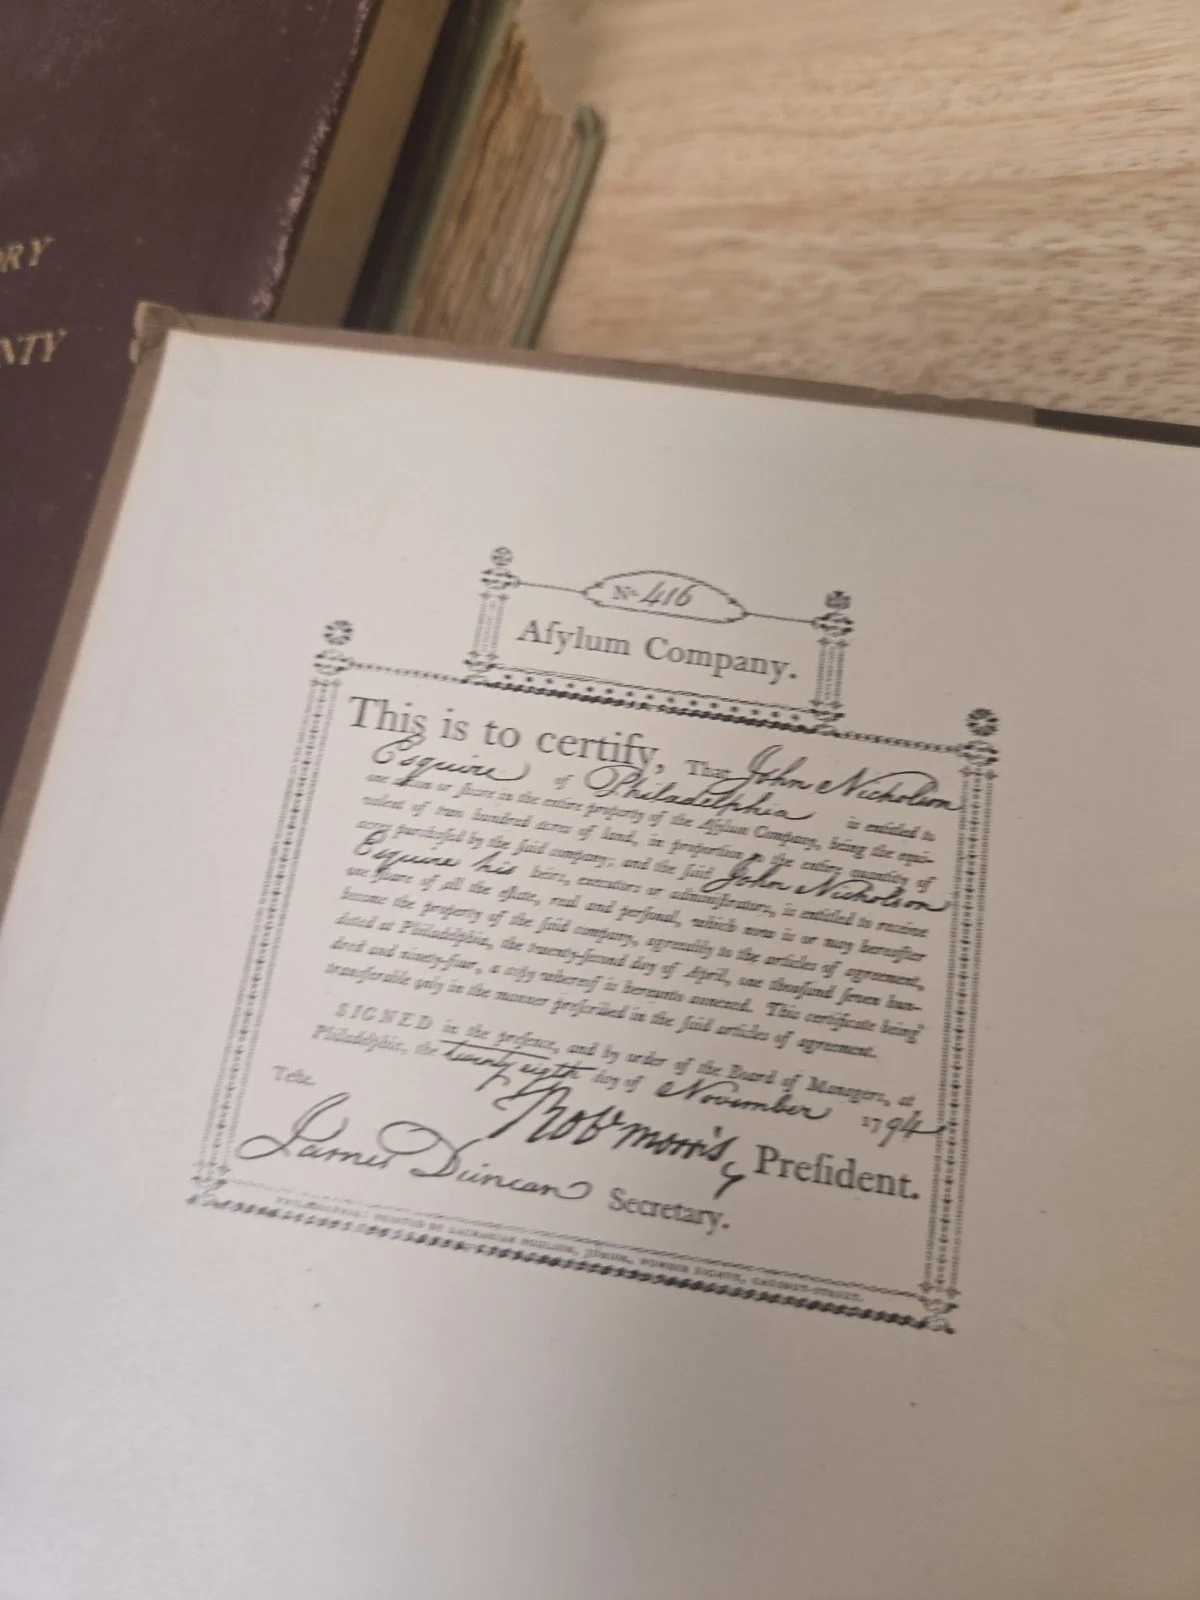 ORY
NTY
No. 416
Aſylum Company.
This is to certify, That John Nicholson
Esquire of Philadelphia is entitled to
one action or ſhare in the entire property of the Aſylum Company, being the equi-
valent of two hundred acres of land, in proportion to the entire quantity of
acres purchaſed by the ſaid company; and the ſaid John Nicholson
Esquire his heirs, executors or adminiſtrators, is entitled to receive
one ſhare of all the eſtate, real and perſonal, which now is or may hereafter
become the property of the ſaid company, agreeably to the articles of agreement,
dated at Philadelphia, the twenty-ſecond day of April, one thouſand ſeven hun-
dred and ninety-four, a copy whereof is hereunto annexed. This certificate being
transferable only in the manner preſcribed in the ſaid articles of agreement.
SIGNED in the preſence, and by order of the Board of Managers, at
Philadelphia, the twenty sixth day of November 1794
Teſte.
Robt Morris, Preſident.
James Duncan Secretary.
PHILADELPHIA: PRINTED BY ZACHARIAH POULSON, JUNIOR, NUMBER EIGHTY, CHESNUT-STREET.